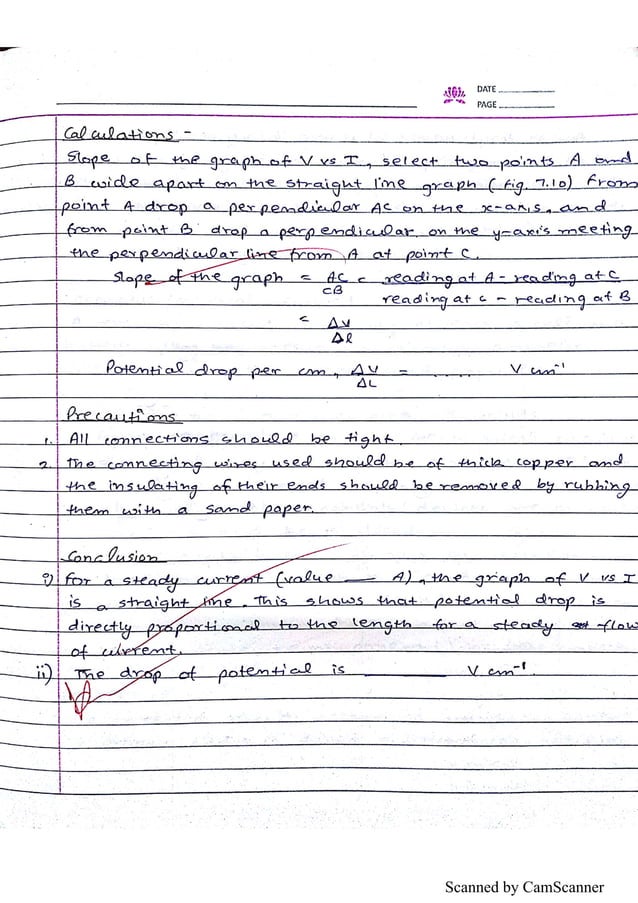 DATE
PAGE
Calculations -
Slope of the graph of V vs I, select two points A and
B wide apart on the straight line graph (fig. 7.10) From
point A drop a perpendicular AC on the x-axis, and
from point B drop a perpendicular on the y-axis meeting
the perpendicular line from A at point C.
Slope of the graph = AC/CB = reading at A - reading at C / reading at c - reading at B
= ΔV/Δl
Potential drop per cm, ΔV/ΔL = ...... V cm⁻¹
Precautions
1. All connections should be tight.
2. The connecting wires used should be of thick copper and
the insulating of their ends should be removed by rubbing
them with a sand paper.
Conclusion
i) for a steady current (value ___ A), the graph of V vs I
is a straight line. This shows that potential drop is
directly proportional to the length for a steady flow
of current.
ii) The drop of potential is ______ V cm⁻¹.
Scanned by CamScanner